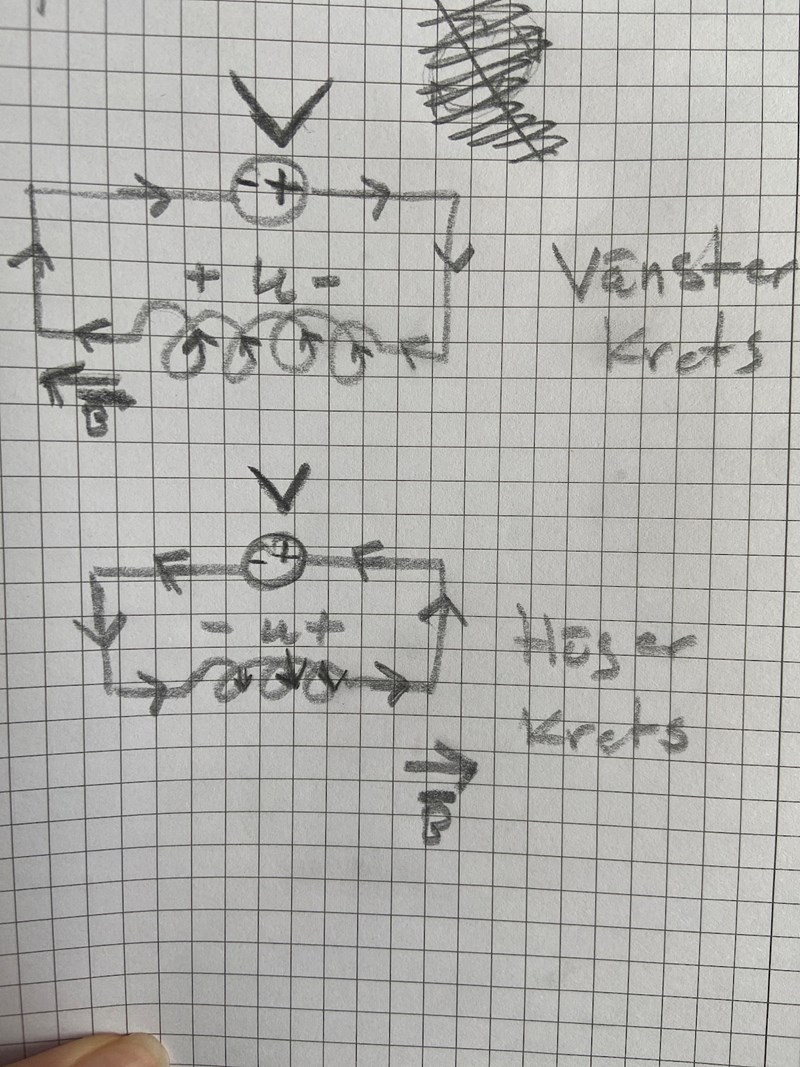 V
- +
+ u -
Vänster
Krets
B
V
- +
- u +
Höger
Krets
B